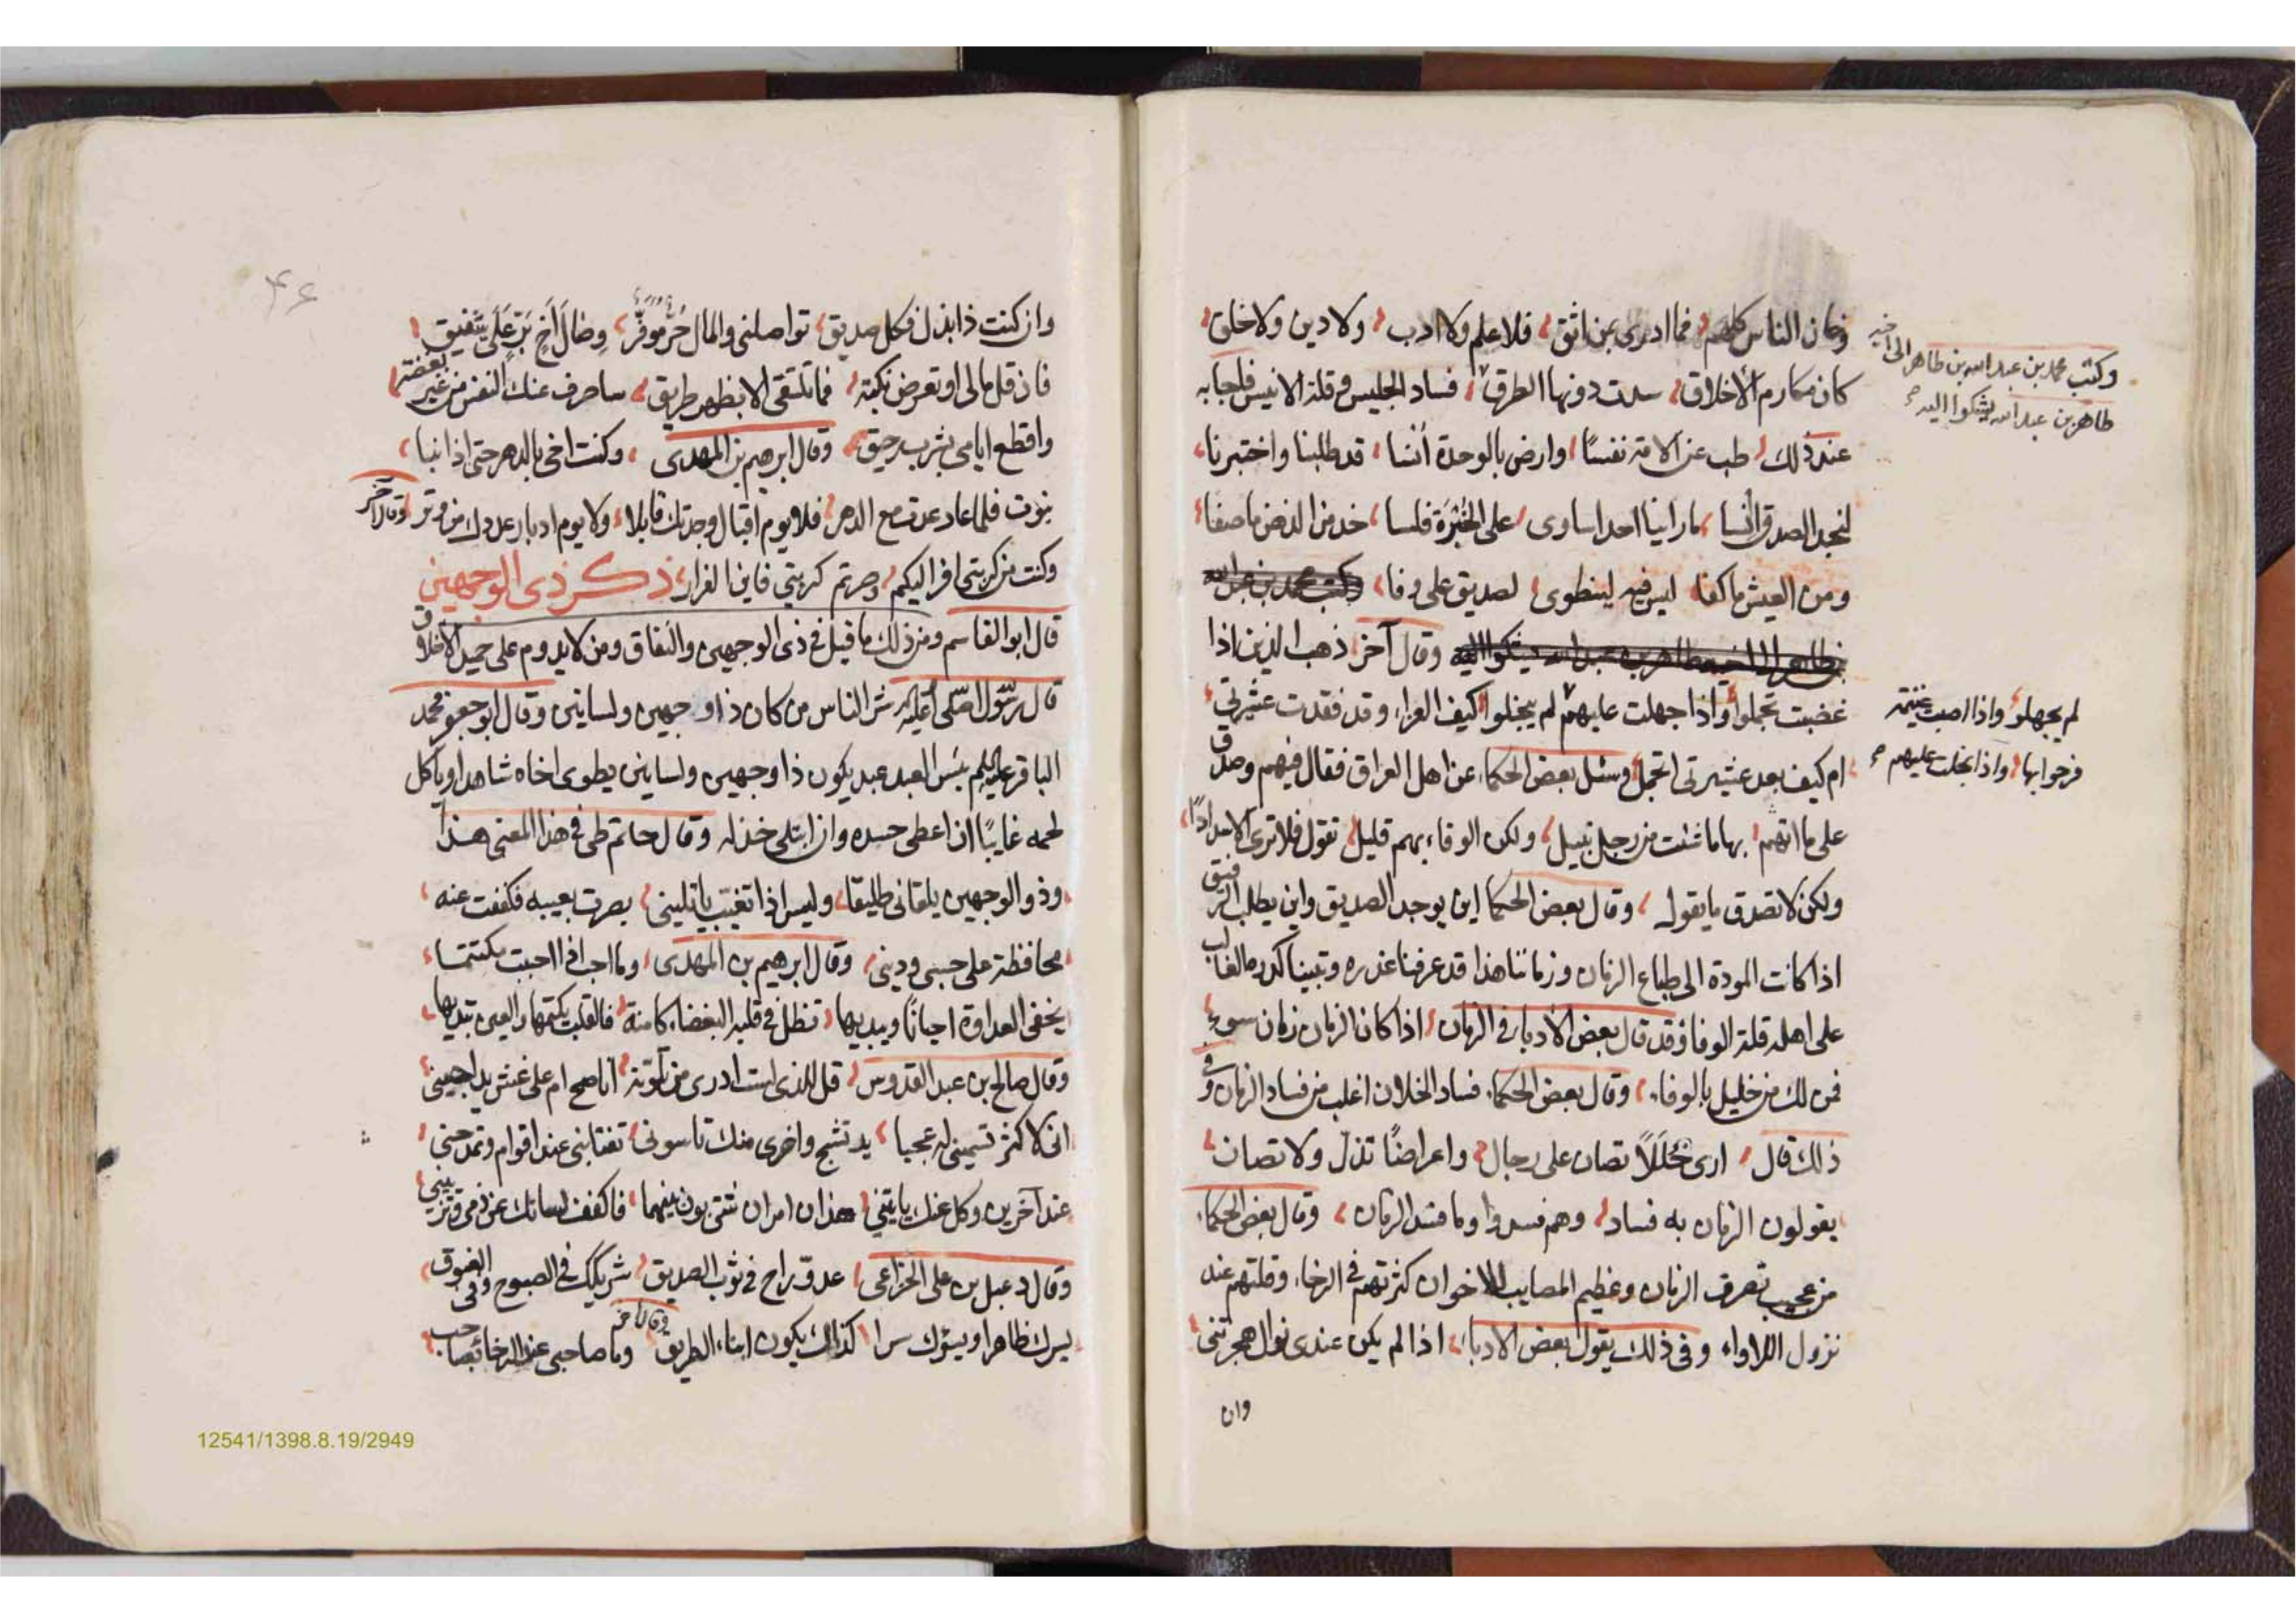 وكان الناس كلهم فما ادرى بمن اثق فلا علم ولا ادب ولا دين ولا خلق
وكتب محمد بن عبد الله بن طاهر الى اخيه
طاهر بن عبد الله يشكوا اليه
كان مكارم الأخلاق سدت دونها الطرق فساد الجليس وقلة الانيس فاجابه
عند ذلك طب عن الامة نفسًا وارض بالوحدة أنسا قد طلبنا واختبرنا
لنجد الصدق انسا ما راينا احدا ساوى على الخبرة فلسا خذ من الدهر ما صفا
ومن العيش ما كفا ليس فيه لينطوى لصديق على وفا وكتب محمد بن عبد الله
بن طاهر الى اخيه طاهر بن عبد الله يشكوا اليه وقال آخر ذهب الذين اذا
غضبت تحملوا واذا جهلت عليهم لم يجهلوا كيف العزاء وقد فقدت عشيرتي
لم يجهلوا واذا اصبت غنيمة
فرحوا بها واذا بخلت عليهم
ام كيف بعد عشيرتى اتجمل وسئل بعض الحكماء عن اهل العراق فقال فيهم وصدق
على ما اتهم بها ما شئت من رجل نبيل ولكن الوفاء بهم قليل تقول فلا ترى الا سدادًا
ولكن لا تصدق ما يقول وقال بعض الحكما اين يوجد الصديق واين يطلب الرفيق
اذا كانت المودة الى طباع الزمان وزماننا هذا قد عرفنا غدره وتبينا كدره فالغالب
على اهله قلة الوفا وقد قال بعض الأدباء فى الزمان اذا كان الزمان زمان سوء
فمن لك من خليل بالوفاء وقال بعض الحكماء فساد الخلان اغلب من فساد الزمان وفى
ذلك قال ارى حُلَلًا تصان على رجال واعراضًا تذل ولا تصان
يقولون الزمان به فساد وهم فسدوا وما فسد الزمان وقال بعض الحكماء
من عجيب تصرف الزمان وعظيم المصايب الاخوان كثرتهم فى الرخاء وقلتهم عند
نزول اللاواء وفى ذلك يقول بعض الادباء اذا لم يكن عندى نوال هجرتنى
وان
٤٦
وان كنت ذا بذل فكل صديق تواصلنى والمال حُرٌّ مُوفَّرٌ وصال أخ بَرٍّ عَلَي شفيق
فان قل مالى او تعرض نكبة فما تلتقى الا بظهر طريق ساصرف عنك النفس من غير بغضة
واقطع ايامى بشرب رحيق وقال ابرهيم بن المهدى وكنت اخى بالدهر حتى اذا نبا
نبوت فلما عاد عدت مع الدهر فلا يوم اقبال وجدتك قابلا ولا يوم ادبار عددتك من وتر وقال آخر
وكنت من كربتى افر اليكم وصرتم كربتي فاين الفرار ذكر ذى الوجهين
قال ابو القاسم ومن ذلك ما قيل فى ذى الوجهين والنفاق ومن لا يدوم على جميل الاخلاق
قال رسول الله صلى الله عليه شر الناس من كان ذا وجهين ولسانين وقال ابو جعفر محمد
الباقر عليه السلم بئس العبد عبد يكون ذا وجهين ولسانين يطوى اخاه شاهدا وياكل
لحمه غايبًا ان اعطى حسده وان ابتلى خذله وقال حاتم طى فى هذا المعنى هذا
وذو الوجهين يلقانى طليقا وليس اذا تغيّب ياتلينى بصرت بعيبه فكففت عنه
محافظة على حسبى ودينى وقال ابرهيم بن المهدى وما احب اذا احببت مكتتما
يخفى العداوة احيانًا ويبديها تظل فى قلبه البغضاء كامنة فالقلب يكتمها والعين تبديها
وقال صالح بن عبد القدوس قل للذى لست ادرى من تلونه اناصح ام على غش يداجينى
انى لاكثر مما تسمينى عجبا يد تشج واخرى منك تاسونى تغتابنى عند اقوام وتمدحنى
عند آخرين وكل عنك ياتينى هذان امران شتى بون بينهما فاكفف لسانك عن ذمى وتزيينى
وقال دعبل بن على الخزاعى عدوّ راح فى ثوب الصديق شريكك فى الصبوح وفى الغبوق
يسرك ظاهرا ويسؤك سرا كذلك يكون ابناء الطريق وقال آخر وما صاحبى عند الرخاء بصاحب
12541/1398.8.19/2949